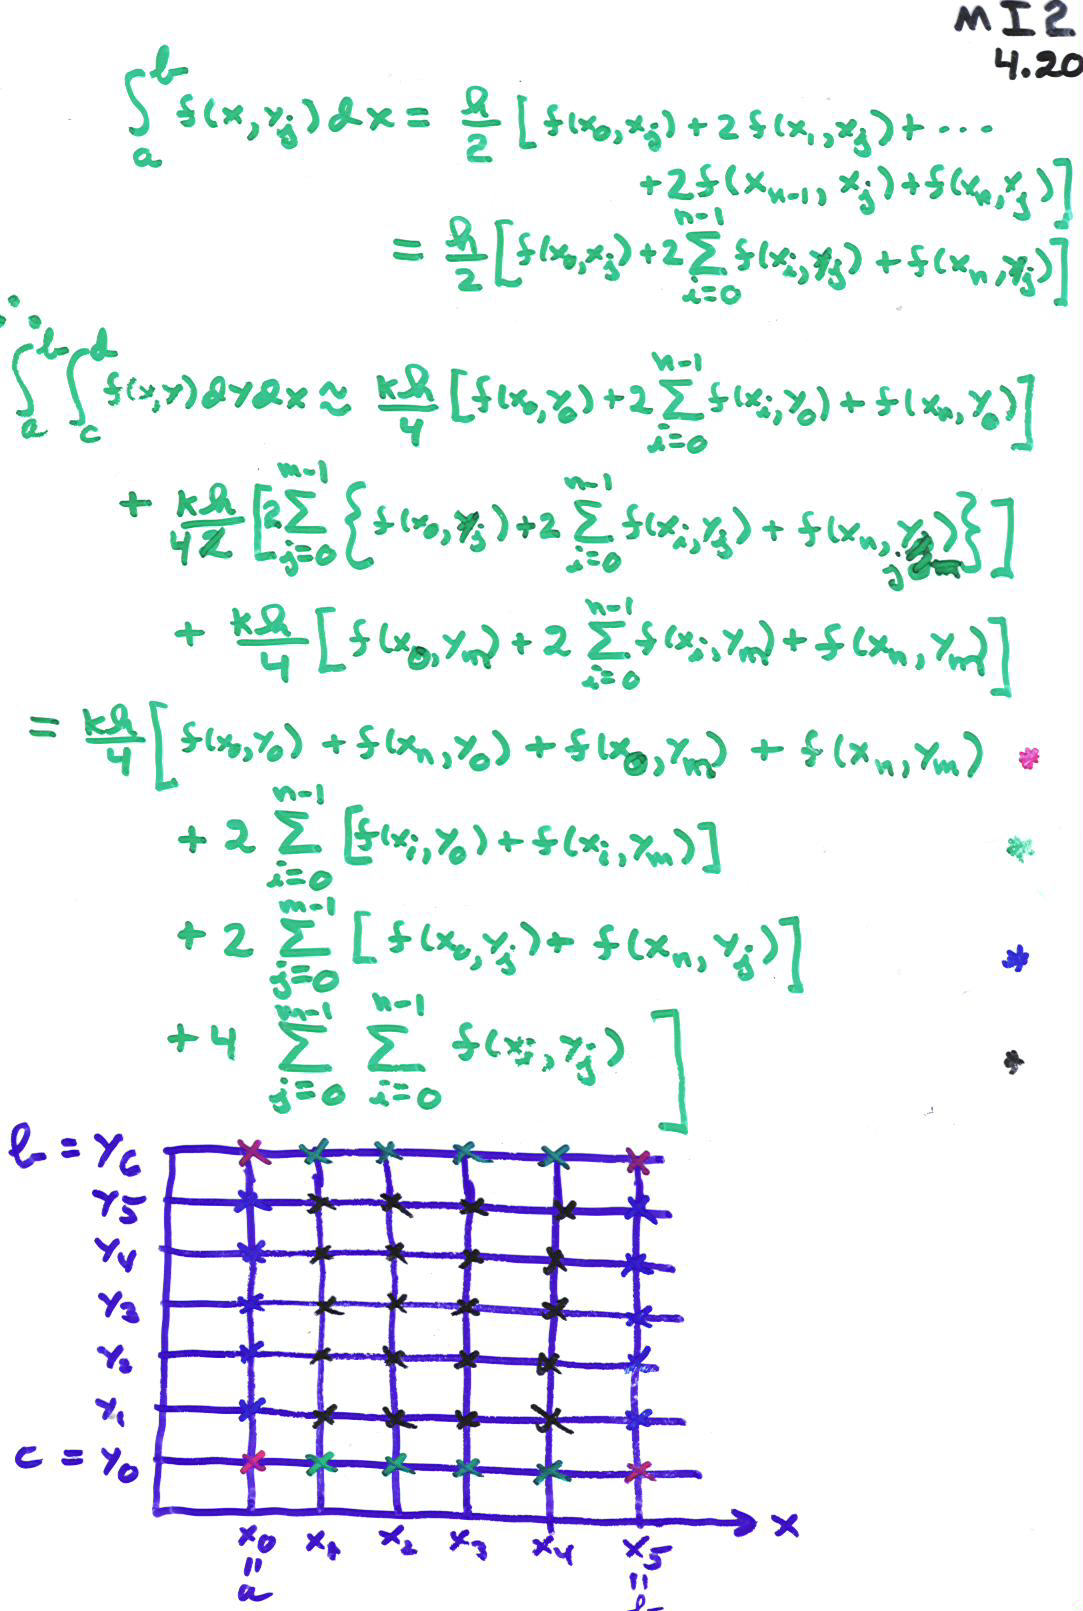 MI2
4.20
∫_a^b f(x, y_j) dx = h/2 [ f(x_0, x_j) + 2 f(x_1, x_j) + ...
+ 2f(x_{n-1}, x_j) + f(x_n, x_j) ]
= h/2 [ f(x_0, x_j) + 2 Σ_{i=0}^{n-1} f(x_i, y_j) + f(x_n, y_j) ]
∴
∫_a^b ∫_c^d f(x, y) dy dx ≈ kh/4 [ f(x_0, y_0) + 2 Σ_{i=0}^{n-1} f(x_i, y_0) + f(x_n, y_0) ]
+ kh/4 [ 2 Σ_{j=0}^{m-1} { f(x_0, y_j) + 2 Σ_{i=0}^{n-1} f(x_i, y_j) + f(x_n, y_j) } ]
+ kh/4 [ f(x_0, y_m) + 2 Σ_{i=0}^{n-1} f(x_i, y_m) + f(x_n, y_m) ]
= kh/4 [ f(x_0, y_0) + f(x_n, y_0) + f(x_0, y_m) + f(x_n, y_m) *
+ 2 Σ_{i=0}^{n-1} [ f(x_i, y_0) + f(x_i, y_m) ] *
+ 2 Σ_{j=0}^{m-1} [ f(x_0, y_j) + f(x_n, y_j) ] *
+ 4 Σ_{j=0}^{m-1} Σ_{i=0}^{n-1} f(x_i, y_j) ] *
b = y_6
y_5
y_4
y_3
y_2
y_1
c = y_0
x
x_0 x_1 x_2 x_3 x_4 x_5
= =
a b